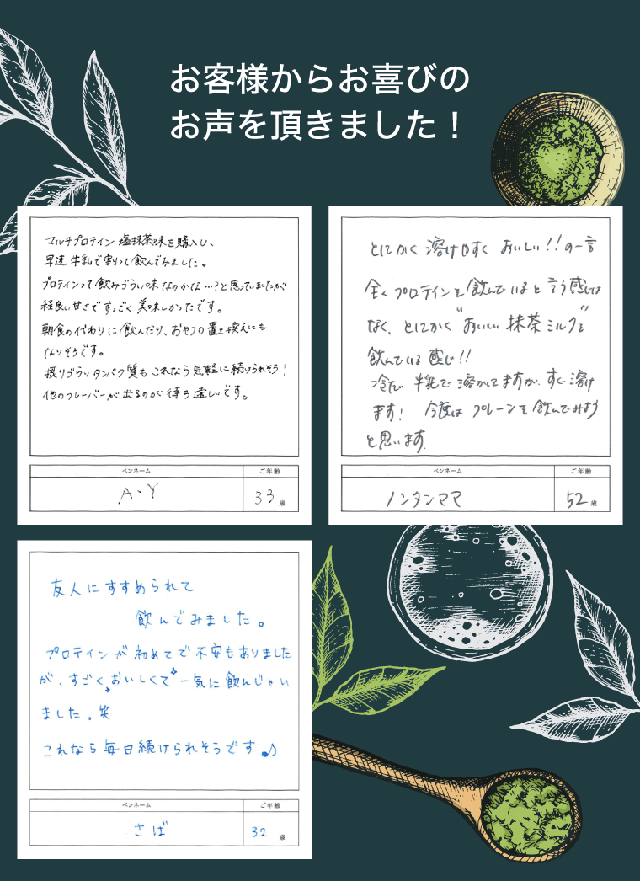 お客様からお喜びの
お声を頂きました！
マルチプロテイン 塩抹茶味を購入し、
早速 牛乳で割って飲んでみました。
プロテインって飲みづらい味なのかな…?と思っていましたが
程良い甘さですっごく美味しかったです。
朝食の代わりに飲んだり、おやつの置き換えにも
なりそうです。
摂りづらいタンパク質もこれなら気軽に続けられそう!
他のフレーバーが出るのが待ち遠しいです。
ペンネーム
ご年齢
A・Y
33歳
とにかく溶けやすく おいしい!!の一言
全くプロテインを飲んでいると言う感じは
なく、とにかく"おいしい 抹茶ミルク"を
飲んでいる感じ!!
冷たい牛乳で溶かしてますが、すぐ溶け
ます! 今度は プレーンも飲んでみよう
と思います。
ペンネーム
ご年齢
ノンタンママ
52歳
友人にすすめられて
飲んでみました。
プロテインが初めてで不安もありました
が、すごくおいしくて 一気に飲んじゃい
ました。笑
これなら毎日続けられそうです♪
ペンネーム
ご年齢
さば
32歳